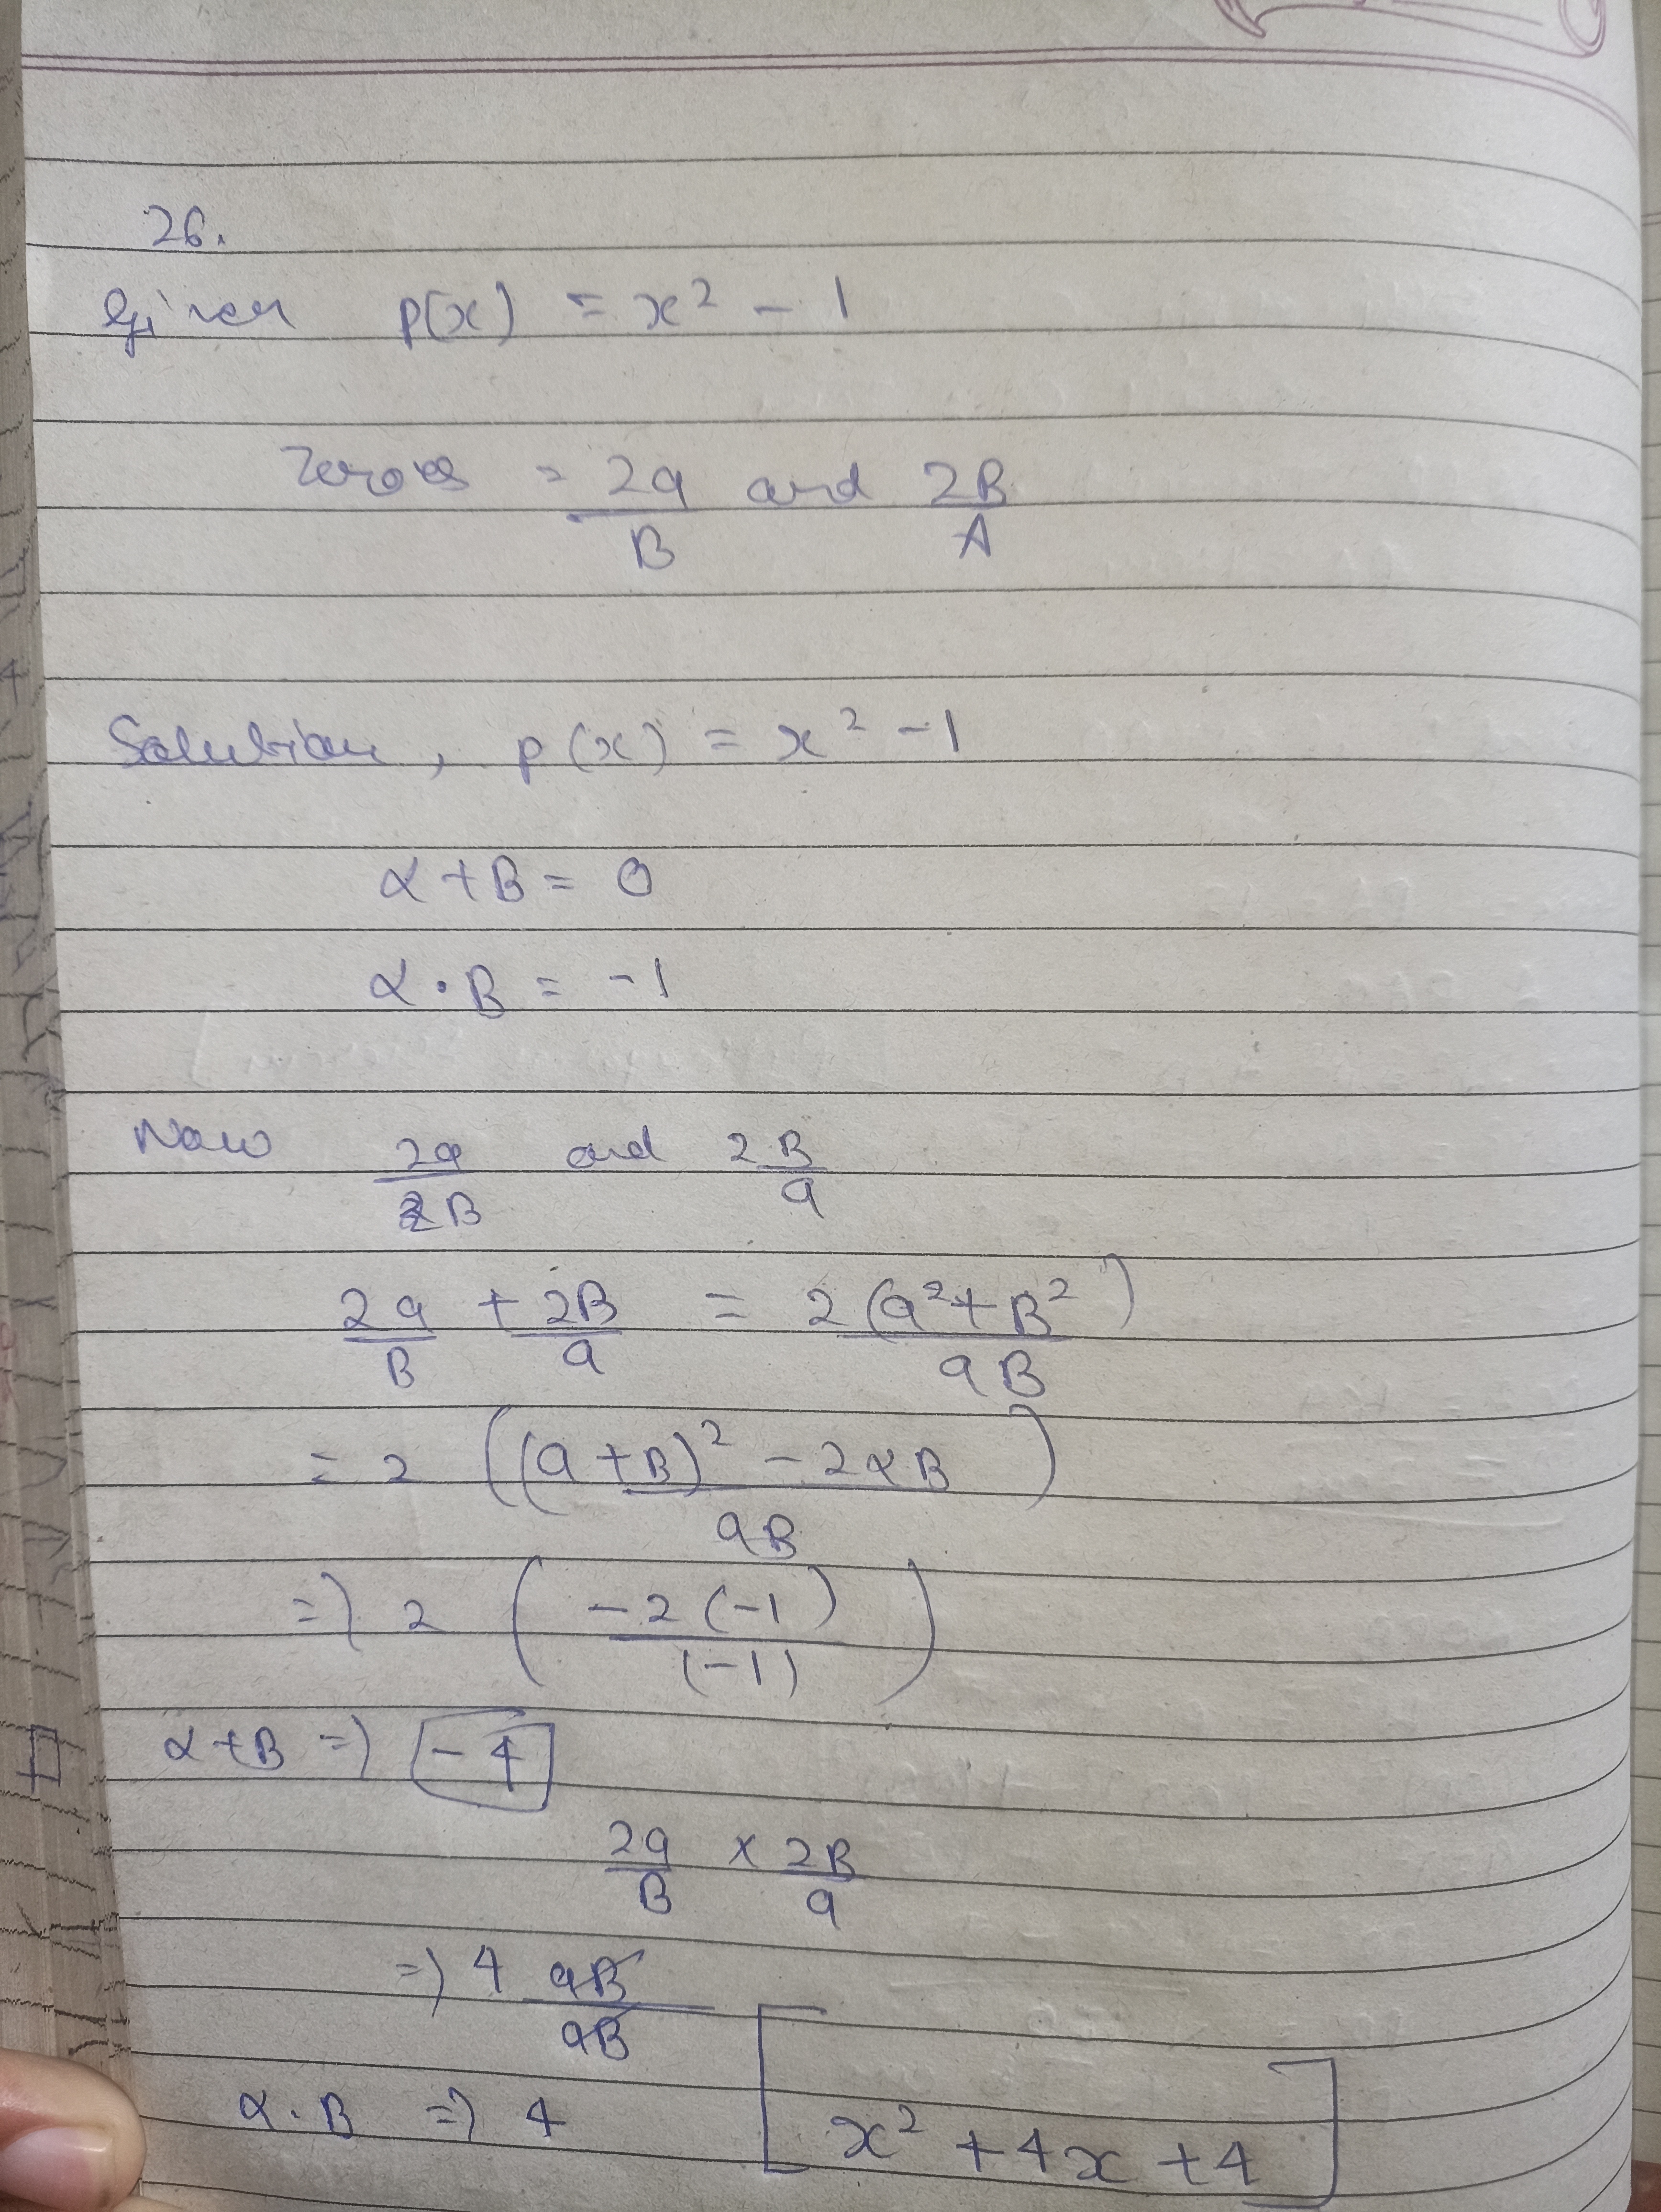 26.
Given p(x) = x² - 1
Zeroes = 2a/B and 2B/A
Solution, p(x) = x² - 1
α + B = 0
α . B = -1
Now 2a/B and 2B/a
2a/B + 2B/a = 2(a² + B²)/aB
= 2 ((a + B)² - 2αB / aB)
=> 2 (-2(-1) / (-1))
α + B => -4
2a/B × 2B/a
=> 4 aB/aB
α . B => 4
[x² + 4x + 4]